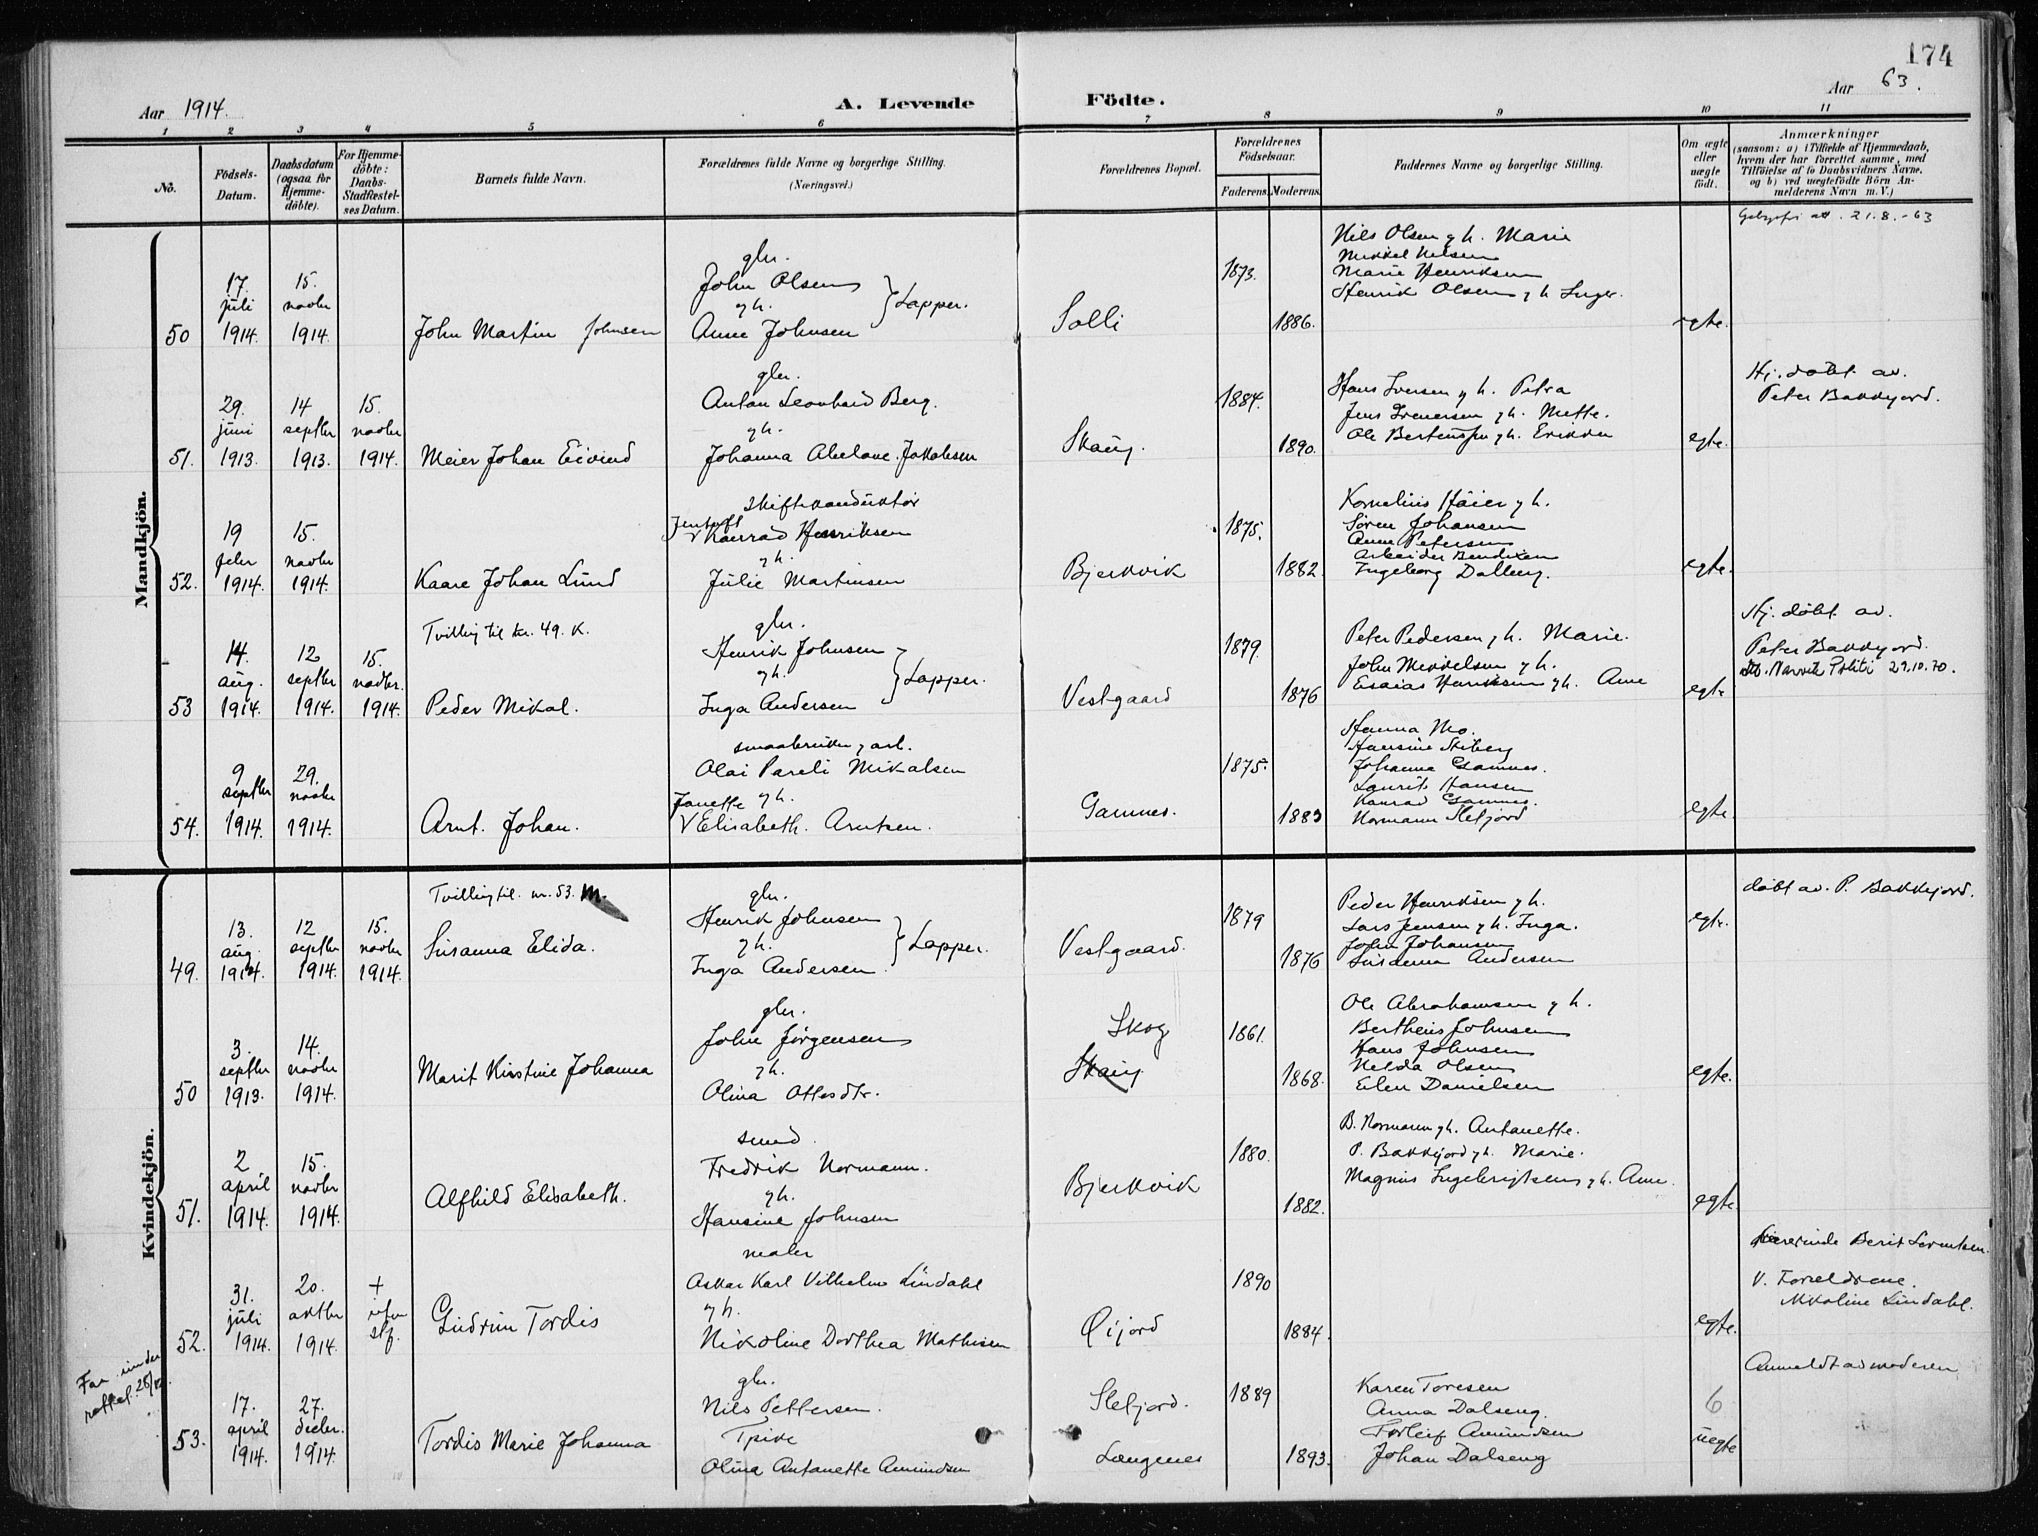 174
Aar 1914.
A. Levende Födte.
Aar 63.
1 2 3 4 5 6 7 8 9 10 11
No.
Födsels-Datum.
Daabsdatum (ogsaa for Hjemme-döbte).
For Hjemme-döbte: Daabs-Stadfæstel-ses Datum.
Barnets fulde Navn.
Forældrenes fulde Navne og borgerlige Stilling.
(Næringsvei.)
Forældrenes Bopæl.
Forældrenes Födselsaar.
Faderens. Moderens.
Faddernes Navne og borgerlige Stilling.
Om ægte eller uægte födt.
Anmærkninger
(saasom: a) i Tilfælde af Hjemmedaab, hvem der har forrettet samme, med Tilföielse af to Daabsvidners Navne, og b) ved uægtefödte Börn An-melderens Navn m. V.)
Mandkjön.
50
17. juli 1914.
15. novbr 1914.
John Martin Johnsen
gbr.
John Olsen
gh.
Anne Johnsen
Lapper.
Solli
1873.
1886.
Nils Olsen gh. Marie
Mikkel Nilsen
Marie Henriksen
Henrik Olsen gh Inger.
egte.
21.8.-63
51.
29. juni 1913.
14 septbr 1913.
15. novbr 1914.
Meier Johan Eivind
gbr.
Anton Leonhard Berg.
gh.
Johanna Abelone Jakobsen
Skaug.
1884.
1890.
Hans Iversen gh. Petra
Jens Ivenersen gh. Mette.
Ole Berteussen gh. Erikka
egte.
Hj. døbt av.
Peter Bakkejord.
52.
19 febr 1914.
15. novbr 1914.
Kaare Johan Lund
skiftekonduktør
Jentoft
V Konrad Henriksen
gh.
Julie Martinsen
Bjerkvik
1875.
1882.
Kornelius Høier gh.
Søren Johansen
Anne Petersen
Arbeider Bendixen
Ingeborg Dalberg.
egte.
53
14. aug. 1914.
12 septbr 1914.
15. novbr. 1914.
Tvilling til nr. 49. K.
Peder Mikal.
gbr.
Henrik Johnsen
gh.
Inga Andersen
Lapper.
Vestgaard
1879.
1876
Peter Pedersen gh. Marie.
John Mikkelsen gh.
Esaias Henriksen gh. Anne
egte
Hj. døbt av.
Peter Bakkejord.
Narvik Politi 29.10.70.
54.
9 septbr 1914.
29. novbr 1914.
Arnt. Johan.
smaabruker g arb.
Olai Pareli Mikalsen
Janette gh.
V Elisabeth. Arntsen.
Gamnes.
1875.
1883
Hanna Mo.
Hansine Stiberg
Johanna Gamnes.
Laurits Hansen
Konrad Gamnes.
Normann Slefjord
egte.
Kvindekjön.
49.
13. aug. 1914.
12 septbr 1914.
15. novbr 1914.
Tvilling til. nr. 53. M.
Susanna Elida.
gbr.
Henrik Johnsen
gh.
Inga Andersen
Lapper.
Vestgaard.
1879
1876
Peder Henriksen gh.
Lars Jensen gh. Inga.
John Johansen
Susanna Andersen
egte.
døbt av. P. Bakkejord.
50
3. septbr 1913.
14. novbr 1914.
Marit Kirstine Johanna
gbr.
John Jørgensen
gh.
Olina Ottesdtr.
Skog
Skaug
1861.
1868.
Ole Abrahamsen gh.
Bertheus Johnsen
Hans Johnsen
Helda Olsen
Elen Danielsen
egte.
51.
2 april 1914.
15. novbr 1914.
Alfhild Elisabeth.
smed.
Fredrik Normann.
gh.
Hansine Johnsen
Bjerkvik
1880.
1882.
B. Normann gh. Antonette.
P. Bakkejord gh. Marie.
Magnus Ingebrigtsen gh. Anne.
egte.
52.
31. juli 1914.
20. oktbr 1914.
+ uten stf.
Gudrun Tordis
maler
Oskar Karl Vilhelm Lindahl
gh.
Nikoline Dorthea Mathisen
Øijord
1890
1884.
egte.
Lærerinde Berit Lorentsen.
V. Forældrene.
Nikoline Lindahl.
53.
17. april 1914.
27. decbr. 1914.
Tordis Marie Johanna
gbr.
Nils Pettersen.
Tpike
Olina Antonette Amundsen
Slefjord.
Længenes
1889
1893.
Karen Toresen
Anna Dalseng.
Torleif Amundsen
Johan Dalseng
6
uegte
Anmeldt av moderen
Far under